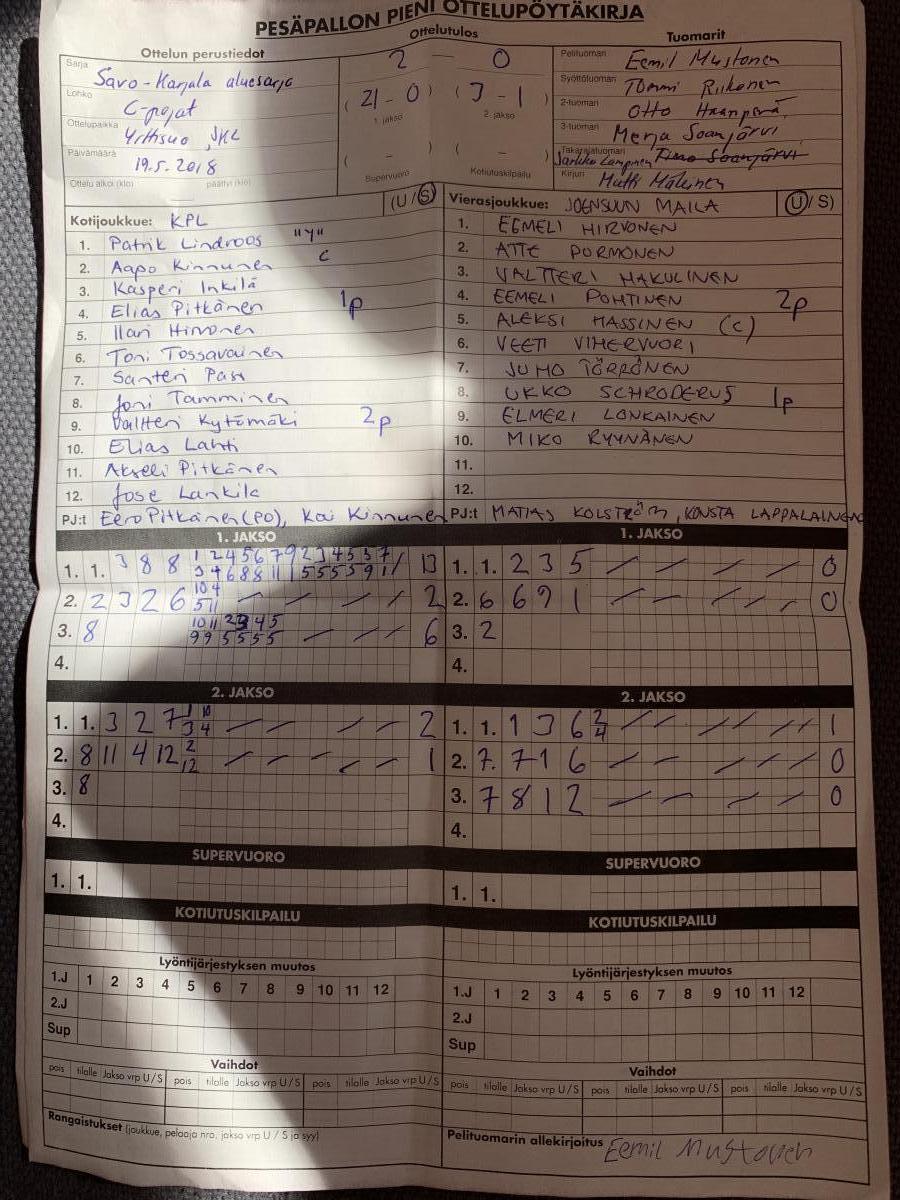 PESÄPALLON PIENI OTTELUPÖYTÄKIRJA
Ottelun perustiedot
Sarja Savo-Karjala aluesarja
Lohko C-pojat
Ottelupaikka JKL
Päivämäärä 19.5.2018
Ottelu alkoi (klo) päättyi (klo)
Ottelutulos
2 - 0
(21 - 0) (3 - 1)
1. jakso 2. jakso
( - ) ( - )
Supervuoro Kotiutuskilpailu
Tuomarit
Pelituomari Eemil Mustonen
Syöttötuomari Tommi Riikonen
2-tuomari Otto Haanperä
3-tuomari Merja Soanjärvi
Takarajatuomari Timo Soanjärvi
Kirjuri Matti Mäkinen
Kotijoukkue: KPL (U/S)
1. Patrik Lindroos "Y"
2. Aapo Kinnunen C
3. Kasperi Inkilä
4. Elias Pitkänen 1p
5. Ilari Hirvonen
6. Toni Tossavainen
7. Santeri Pasi
8. Joni Tamminen
9. Valtteri Kytömäki 2p
10. Elias Lahti
11. Akseli Pitkänen
12. Jose Lankila
PJ:t Eero Pitkänen (PO), Kai Kinnunen
Vierasjoukkue: JOENSUUN MAILA (U/S)
1. EEMELI HIRVONEN
2. ATTE PORMONEN
3. VALTTERI HAKULINEN
4. EEMELI POHTINEN 2p
5. ALEKSI HASSINEN (C)
6. VEETI VIHERVUORI
7. JUHO TÖRRÖNEN
8. UKKO SCHRODERUS 1p
9. ELMERI LONKAINEN
10. MIKO RYYNÄNEN
11.
12.
PJ:t MATIAS KOLSTRÖM, KONSTA LAPPALAINEN
1. JAKSO
1. 1. 3 8 8 13
2. 2 3 2 6 10 4 2
5 11
3. 8 6
4.
1. JAKSO
1. 1. 2 3 5 0
2. 6 6 9 1 0
3. 2
4.
2. JAKSO
1. 1. 3 2 7 1 10 2
3 4
2. 8 11 4 12 2 1
12
3. 8
4.
2. JAKSO
1. 1. 1 3 6 2 1
4
2. 7. 7 1 6 0
3. 7 8 1 2 0
4.
SUPERVUORO
1. 1.
SUPERVUORO
1. 1.
KOTIUTUSKILPAILU
KOTIUTUSKILPAILU
Lyöntijärjestyksen muutos
1.J 1 2 3 4 5 6 7 8 9 10 11 12
2.J
Sup
Lyöntijärjestyksen muutos
1.J 1 2 3 4 5 6 7 8 9 10 11 12
2.J
Sup
Vaihdot
pois tilalle Jakso vrp U/S pois tilalle Jakso vrp U/S pois tilalle Jakso vrp U/S
Vaihdot
pois tilalle Jakso vrp U/S pois tilalle Jakso vrp U/S pois tilalle Jakso vrp U/S
Rangaistukset (joukkue, pelaaja nro, jakso vrp U/S ja syy)
Pelituomarin allekirjoitus Eemil Mustonen